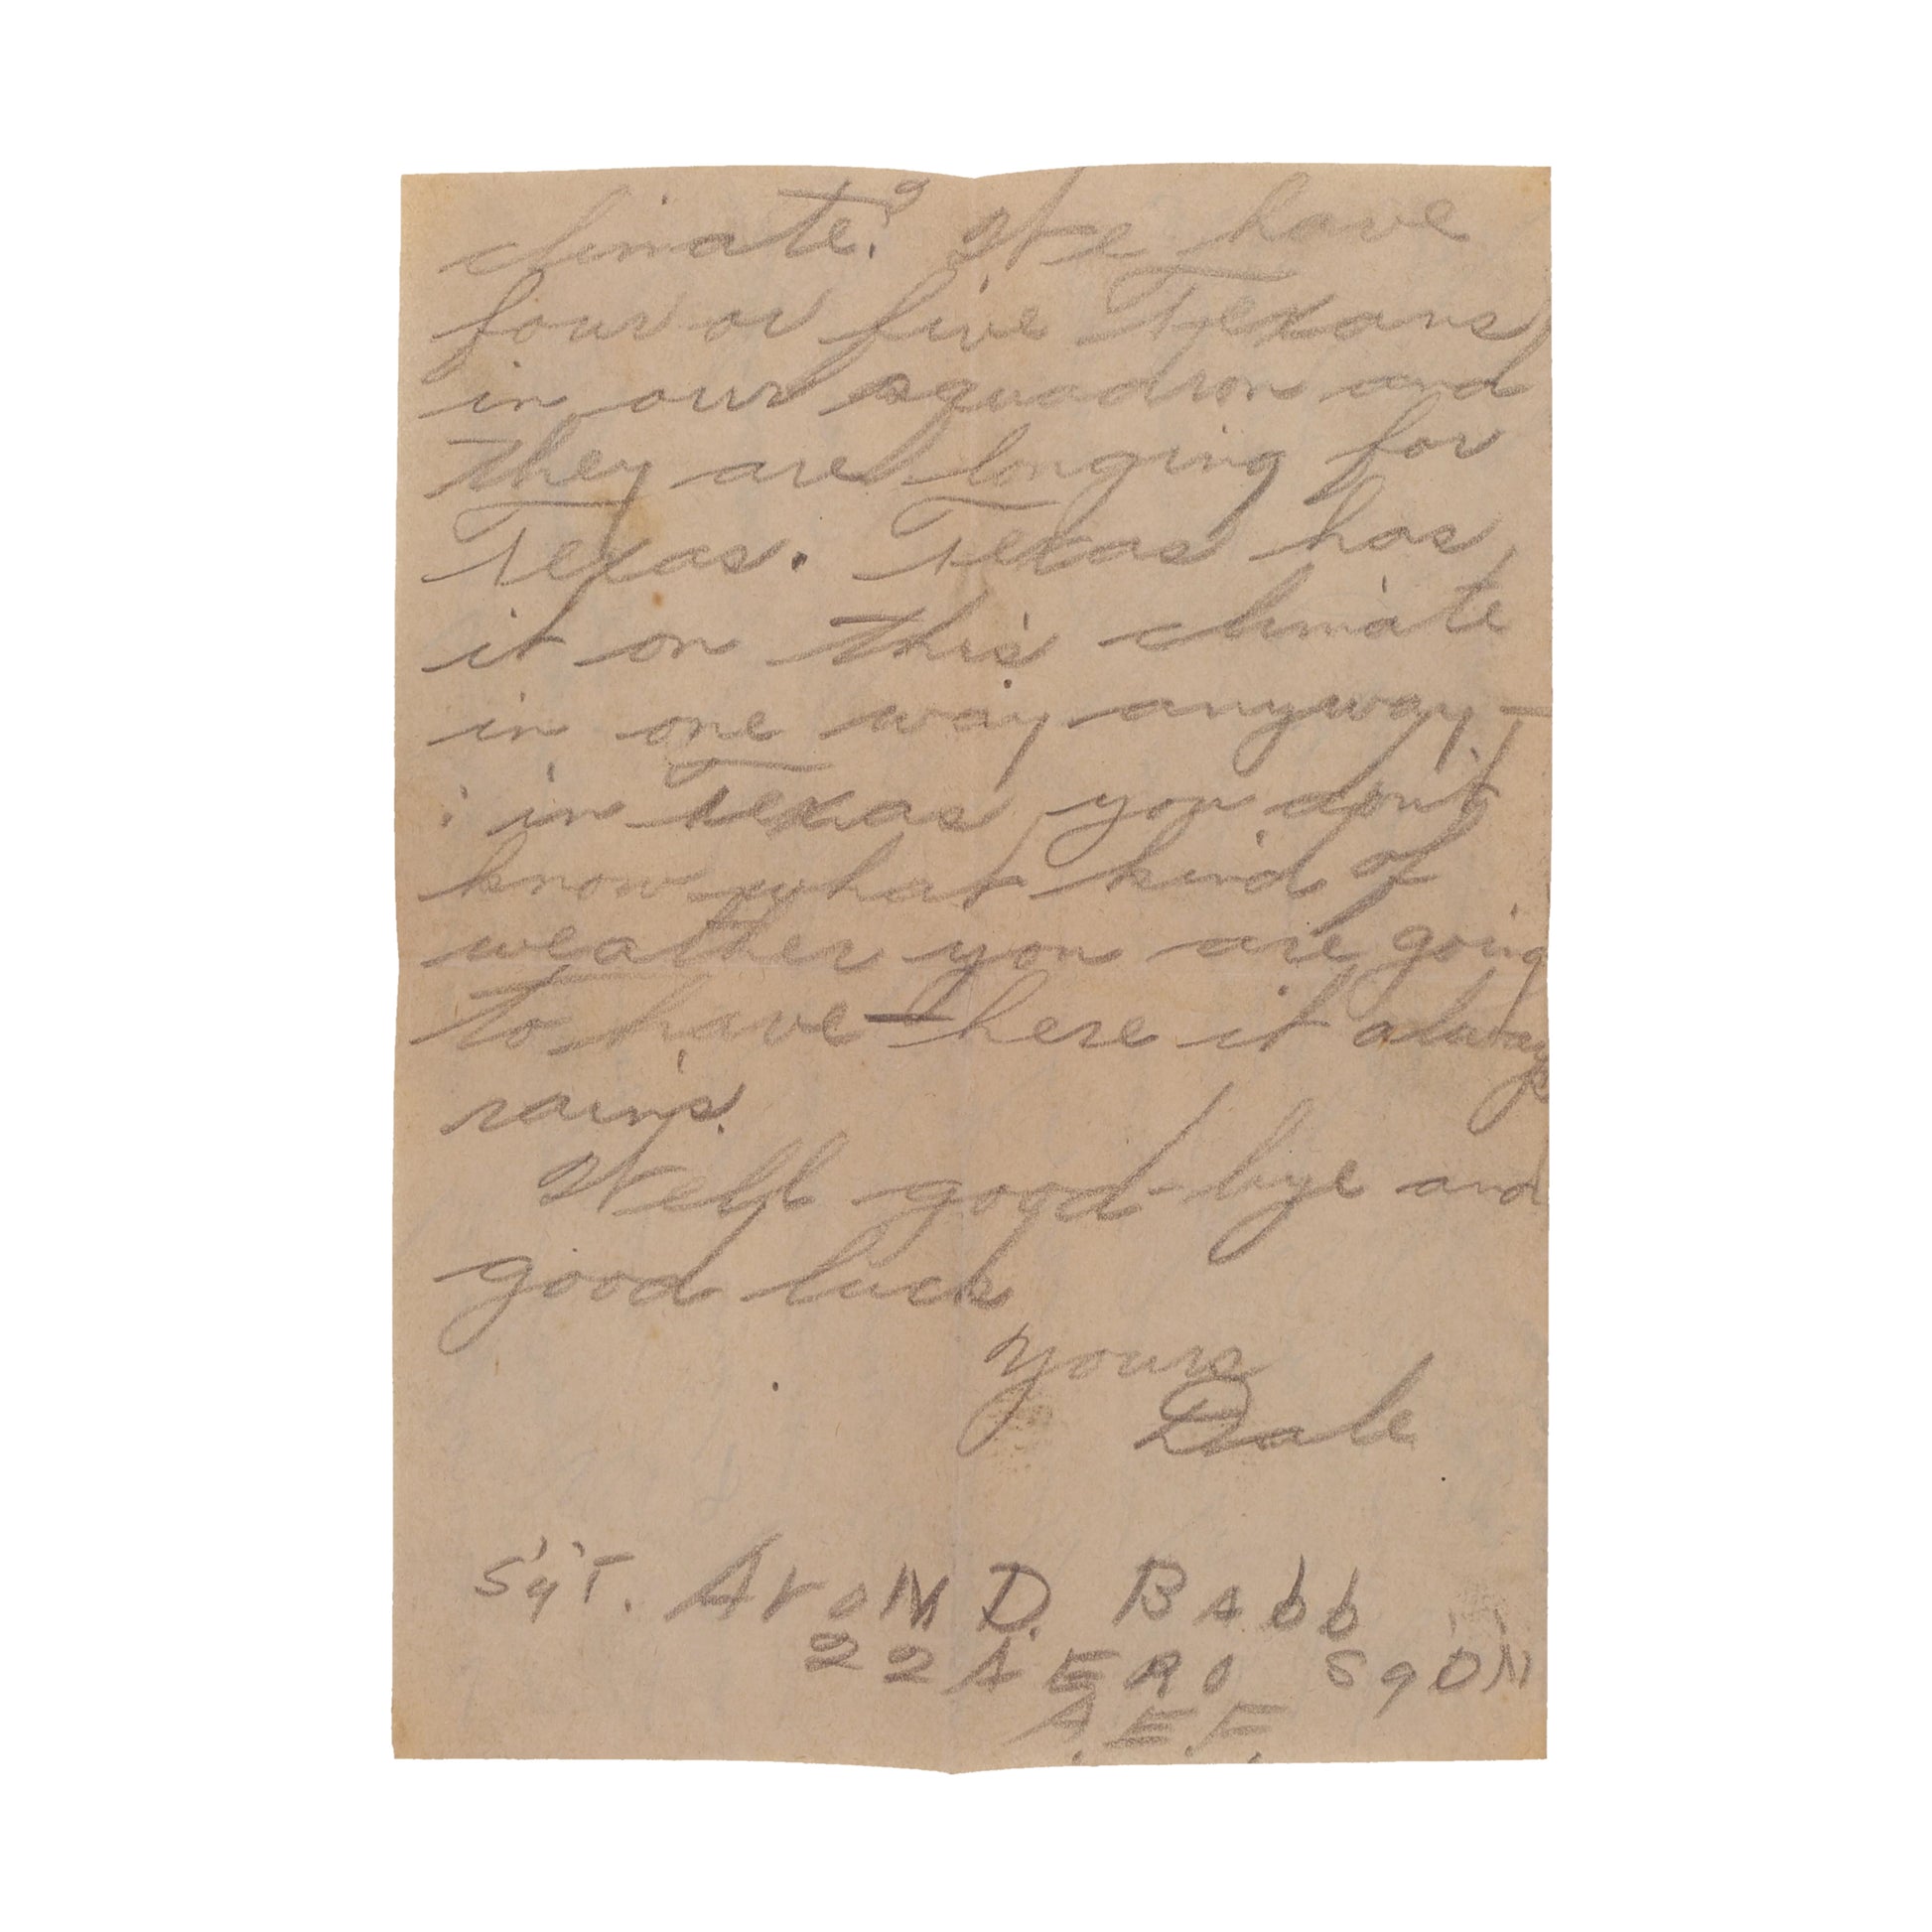 climate? We have
four or five Texans
in our squadron and
they are longing for
Texas. Texas has
it on this climate
in one way anyway –
: in Texas you don't
know what kind of
weather you are going
to have – here it always
rains.
Well good-bye and
good luck
Yours
Dale
SgT. AroN D. BAbb
22 AERO SqDN
A.E.F.